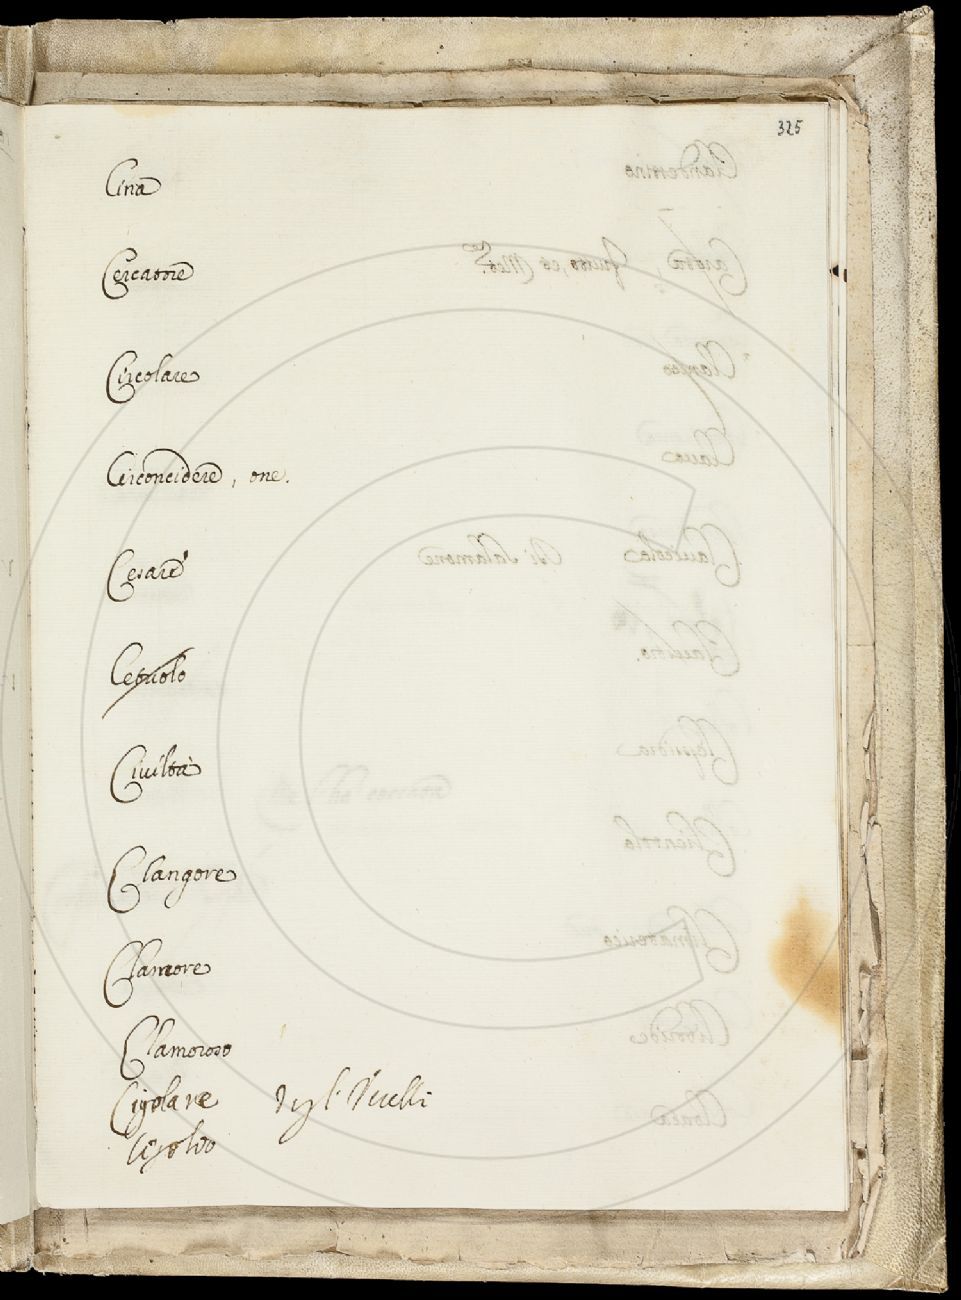 325
Cina
Cercatore
Circolare
Circoncidere, one.
Cesare
Cetuolo
Ciuiltà
Clangore
Clamore
Clamoroso
Cigolare degl' Vcelli
Cigolio